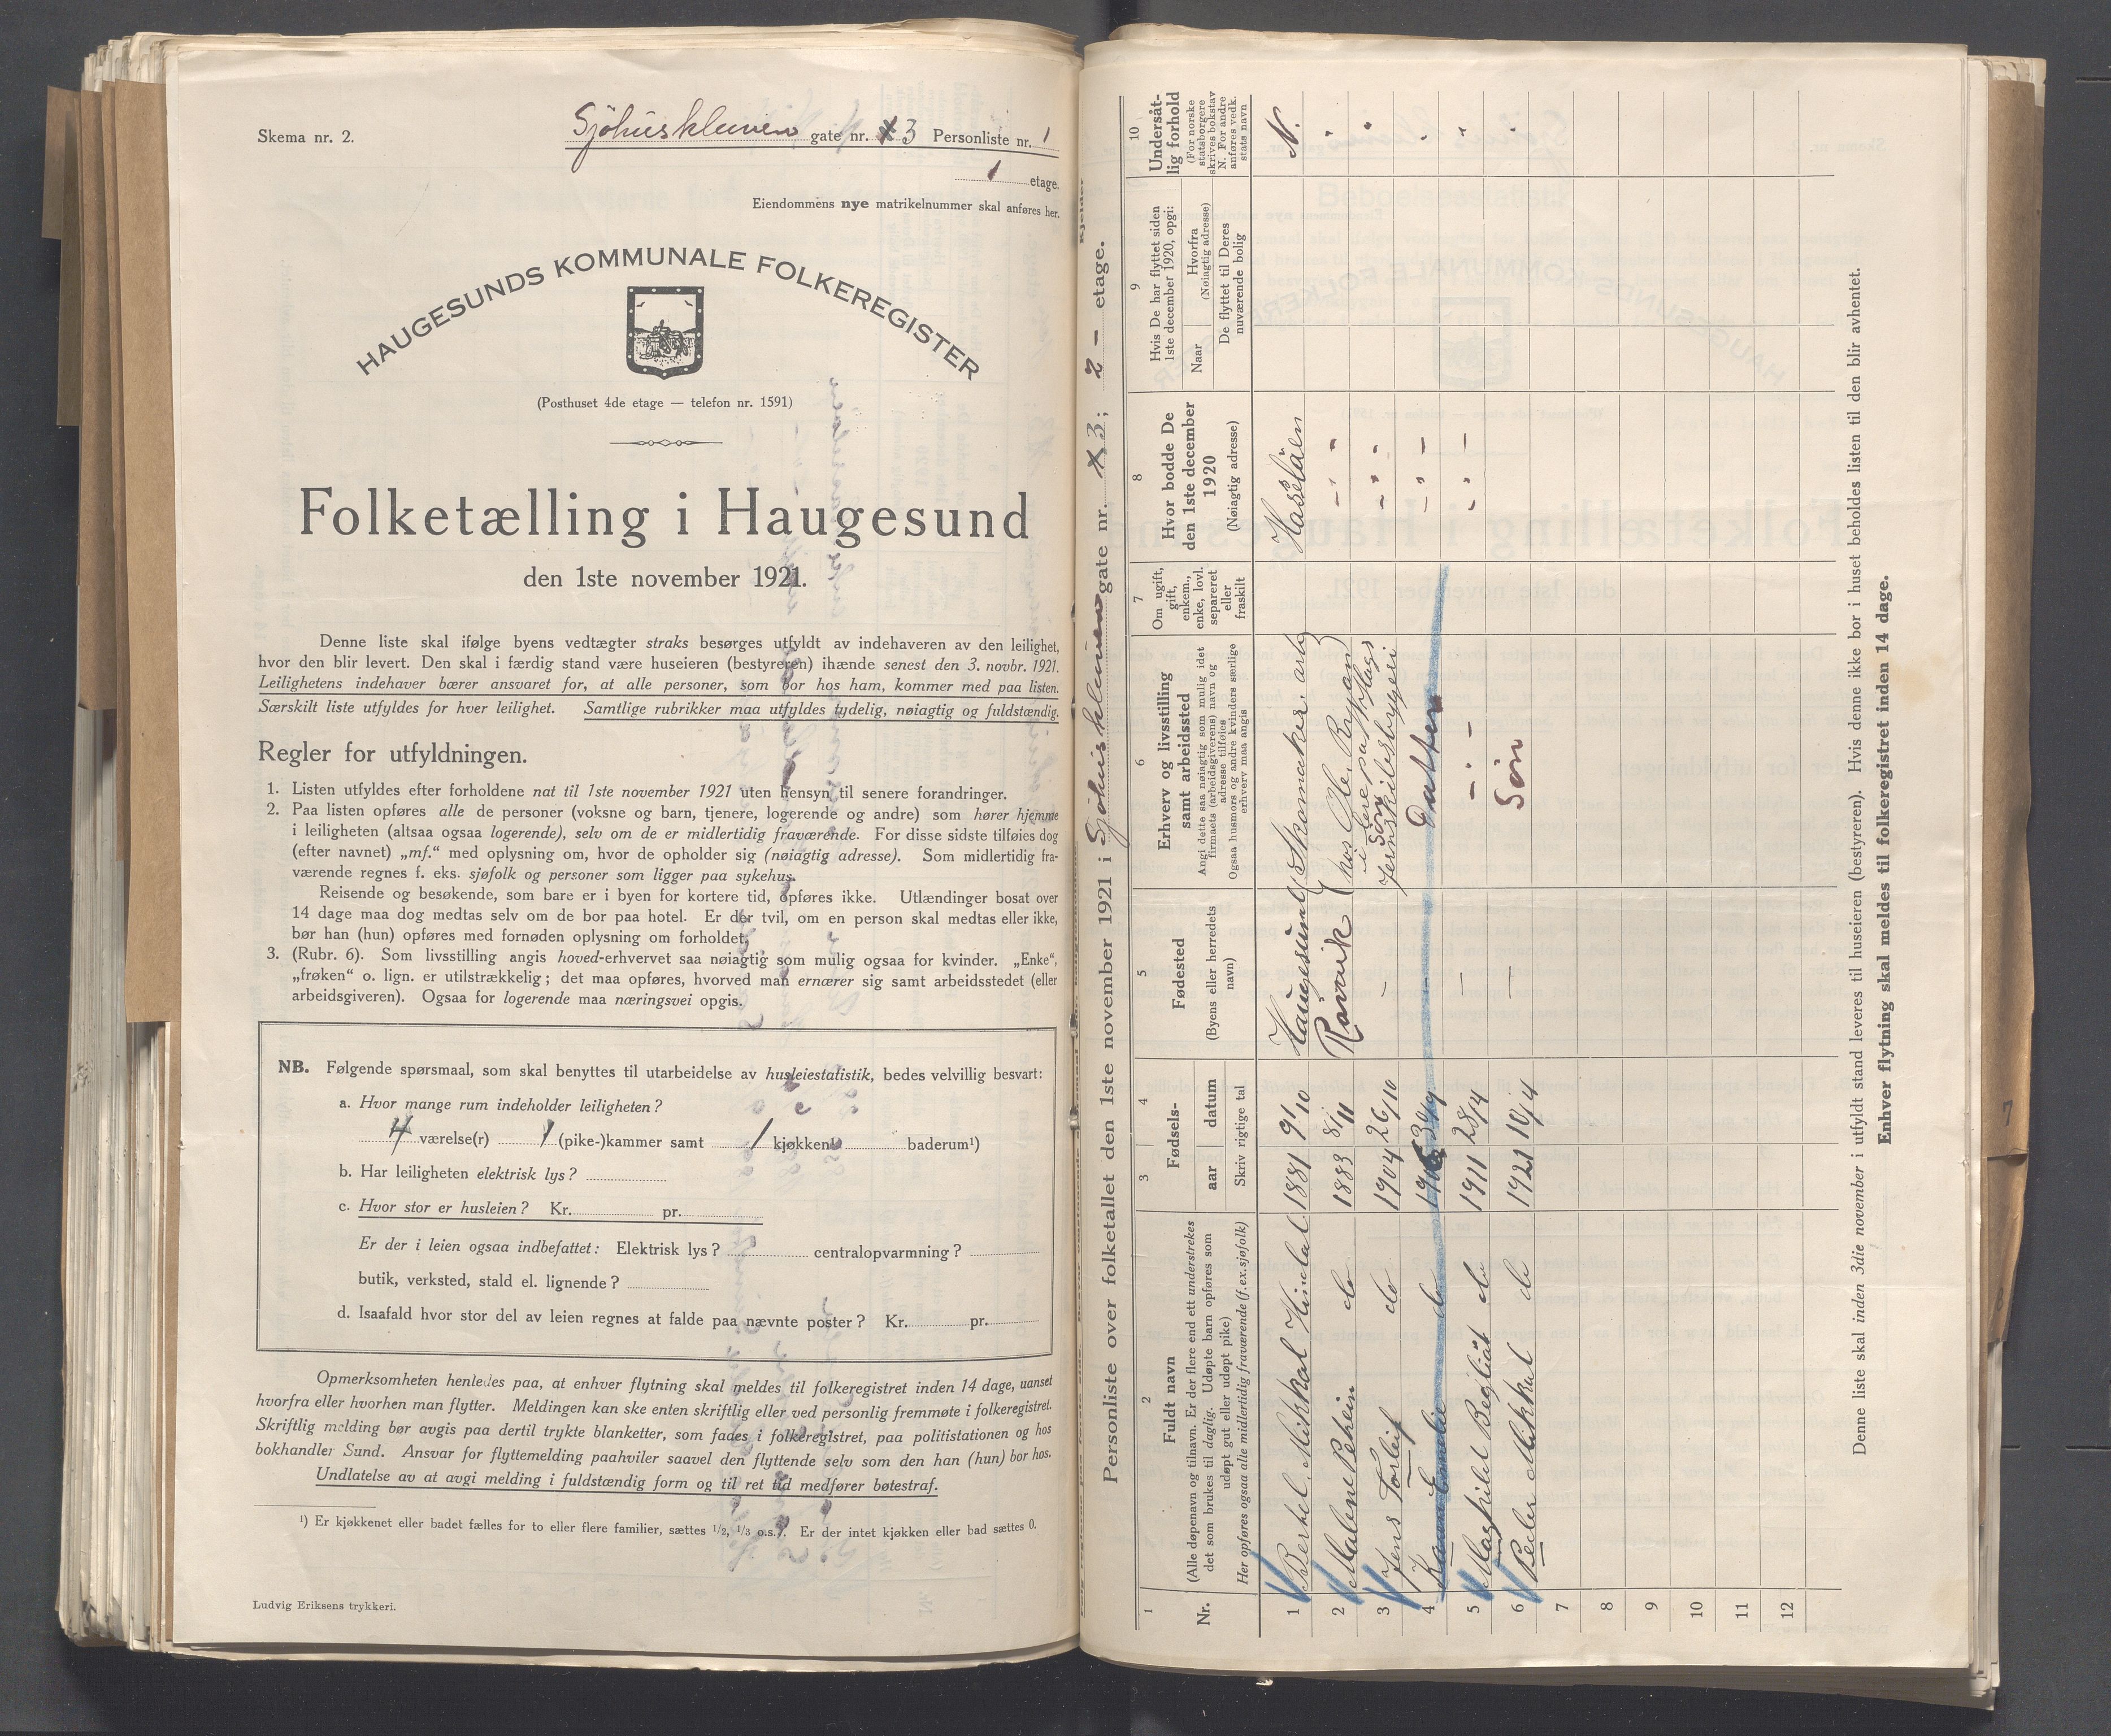 Skema nr. 2.
Sjöhuskleven gate nr. 3 Personliste nr. 1
1 etage.
Eiendommens nye matrikelnummer skal anføres her.
HAUGESUNDS KOMMUNALE FOLKEREGISTER
(Posthuset 4de etage — telefon nr. 1591)
Folketælling i Haugesund
den 1ste november 1921.
Denne liste skal ifølge byens vedtægter straks besørges utfyldt av indehaveren av den leilighet,
hvor den blir levert. Den skal i færdig stand være huseieren (bestyreren) ihænde senest den 3. novbr. 1921.
Leilighetens indehaver bærer ansvaret for, at alle personer, som bor hos ham, kommer med paa listen.
Særskilt liste utfyldes for hver leilighet. Samtlige rubrikker maa utfyldes tydelig, nøiagtig og fuldstændig.
Regler for utfyldningen.
1. Listen utfyldes efter forholdene nat til 1ste november 1921 uten hensyn til senere forandringer.
2. Paa listen opføres alle de personer (voksne og barn, tjenere, logerende og andre) som hører hjemme
i leiligheten (altsaa ogsaa logerende), selv om de er midlertidig fraværende. For disse sidste tilføies dog
(efter navnet) „mf.“ med oplysning om, hvor de opholder sig (nøiagtig adresse). Som midlertidig fra-
værende regnes f. eks. sjøfolk og personer som ligger paa sykehus.
Reisende og besøkende, som bare er i byen for kortere tid, opføres ikke. Utlændinger bosat over
14 dage maa dog medtas selv om de bor paa hotel. Er der tvil, om en person skal medtas eller ikke,
bør han (hun) opføres med fornøden oplysning om forholdet.
3. (Rubr. 6). Som livsstilling angis hoved-erhvervet saa nøiagtig som mulig ogsaa for kvinder. „Enke“,
„frøken“ o. lign. er utilstrækkelig; det maa opføres, hvorved man ernærer sig samt arbeidsstedet (eller
arbeidsgiveren). Ogsaa for logerende maa næringsvei opgis.
NB. Følgende spørsmaal, som skal benyttes til utarbeidelse av husleiestatistik, bedes velvillig besvart:
a. Hvor mange rum indeholder leiligheten?
4 værelse(r) 1 (pike-)kammer samt 1 kjøkken baderum¹)
b. Har leiligheten elektrisk lys?
c. Hvor stor er husleien? Kr. pr.
Er der i leien ogsaa indbefattet: Elektrisk lys? centralopvarmning?
butik, verksted, stald el. lignende?
d. Isaafald hvor stor del av leien regnes at falde paa nævnte poster? Kr. pr.
Opmerksomheten henledes paa, at enhver flytning skal meldes til folkeregistret inden 14 dage, uanset
hvorfra eller hvorhen man flytter. Meldingen kan ske enten skriftlig eller ved personlig fremmøte i folkeregistret.
Skriftlig melding bør avgis paa dertil trykte blanketter, som faaes i folkeregistret, paa politistationen og hos
bokhandler Sund. Ansvar for flyttemelding paahviler saavel den flyttende selv som den han (hun) bor hos.
Undlatelse av at avgi melding i fuldstændig form og til ret tid medfører bøtestraf.
¹) Er kjøkkenet eller badet fælles for to eller flere familier, sættes 1/2, 1/3 o.s.v. Er der intet kjøkken eller bad sættes 0.
Ludvig Eriksens trykkeri.
Personliste over folketallet den 1ste november 1921 i Sjöhuskleven gate nr. 3; 2 – etage.
1 2 3 4 5 6 7 8 9 10
Nr.
Fuldt navn
(Alle døpenavn og tilnavn. Er der flere end ett understrekes
det som brukes til daglig. Udøpte barn opføres som
udøpt gut eller udøpt pike)
Her opføres ogsaa alle midlertidig fraværende (f. ex. sjøfolk)
Fødsels-
aar datum
Skriv rigtige tal
Fødested
(Byens eller herredets
navn)
Erhverv og livsstilling
samt arbeidssted
Angi dette saa nøiagtig som mulig idet
firmaets (arbeidsgiverens) navn og
adresse tilføies
Ogsaa husmors og andre kvinders særlige
erhverv maa angis
Om ugift,
gift,
enkem.,
enke, lovl.
separeret
eller
fraskilt
Hvor bodde De
den 1ste december
1920
(Nøiagtig adresse)
Hvis De har flyttet siden
1ste december 1920, opgi:
Naar Hvorfra
(Nøiagtig adresse)
De flyttet til Deres
nuværende bolig
Undersåt-
lig forhold
(For norske
statsborgere
skrives bokstav
N. For andre
anføres vedk.
stats navn
1 Bertel Mikkal Hindal 1881 9/10 Haugesund Skomaker arb Haselåen N.
2 Malene Petrin do 1883 8/11 Rövvik hos Ole Bryam – " " "
3 Jens Torleif do 1904 26/10 – Sön – " " "
4 Emelie do – Datter – " – "
5 do 1911 28/4 – – " – – " – "
6 Peder Mikkal do 1921 10/4 – Sön "
7
8
9
10
11
12
Denne liste skal inden 3die november i utfyldt stand leveres til huseieren (bestyreren). Hvis denne ikke bor i huset beholdes listen til den blir avhentet.
Enhver flytning skal meldes til folkeregistret inden 14 dage.